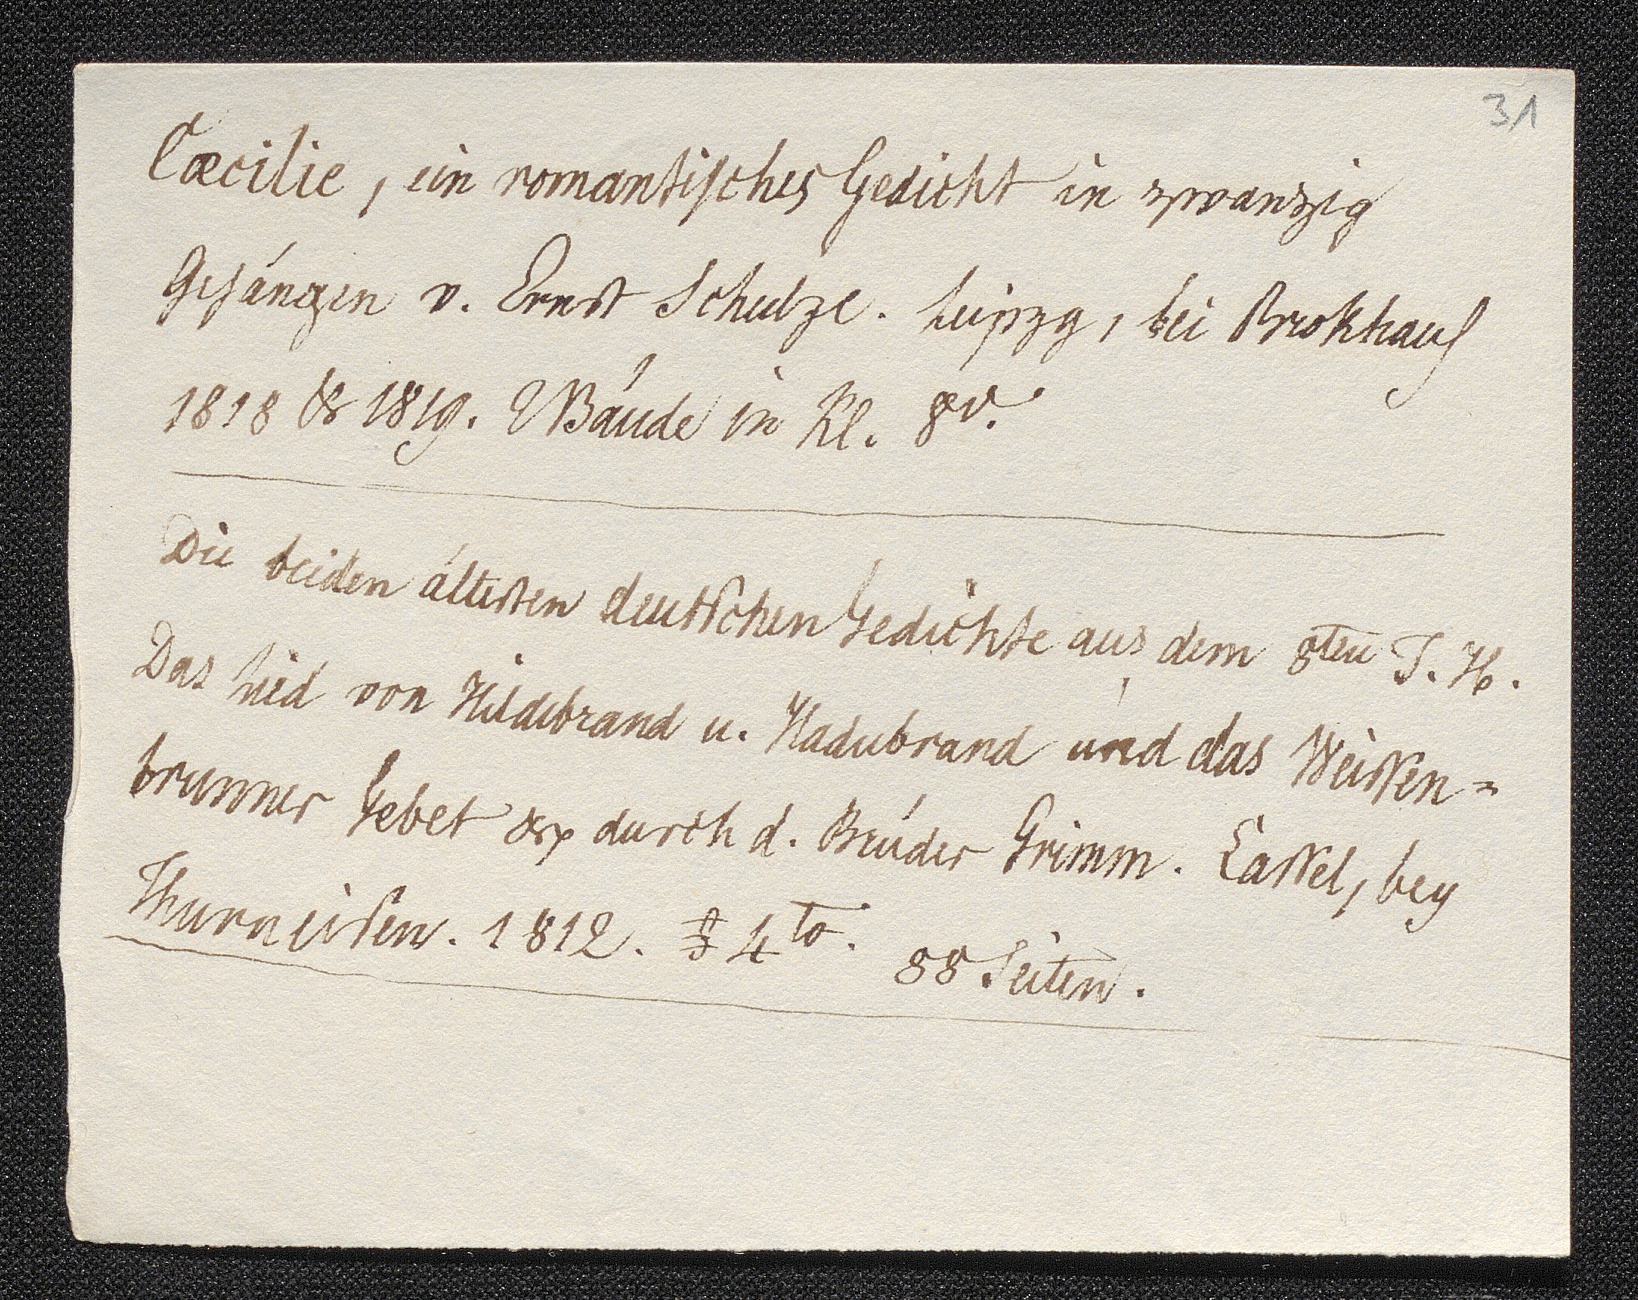 31
Cæcilie, ein romantisches Gedicht in zwanzig
Gesängen v. Ernst Schulze. Leipzg, bei Brokhaus
1818 & 1819. 2 Bände in Kl. 8v.
Die beiden ältesten deutschen Gedichte aus dem 8ten J. H.
Das Lied von Hildebrand u. Hadubrand und das Weissen=
brunner Gebet durch d. Brüder Grimm. Cassel, bey
Thurneisen. 1812. 4to. 88 Seiten.